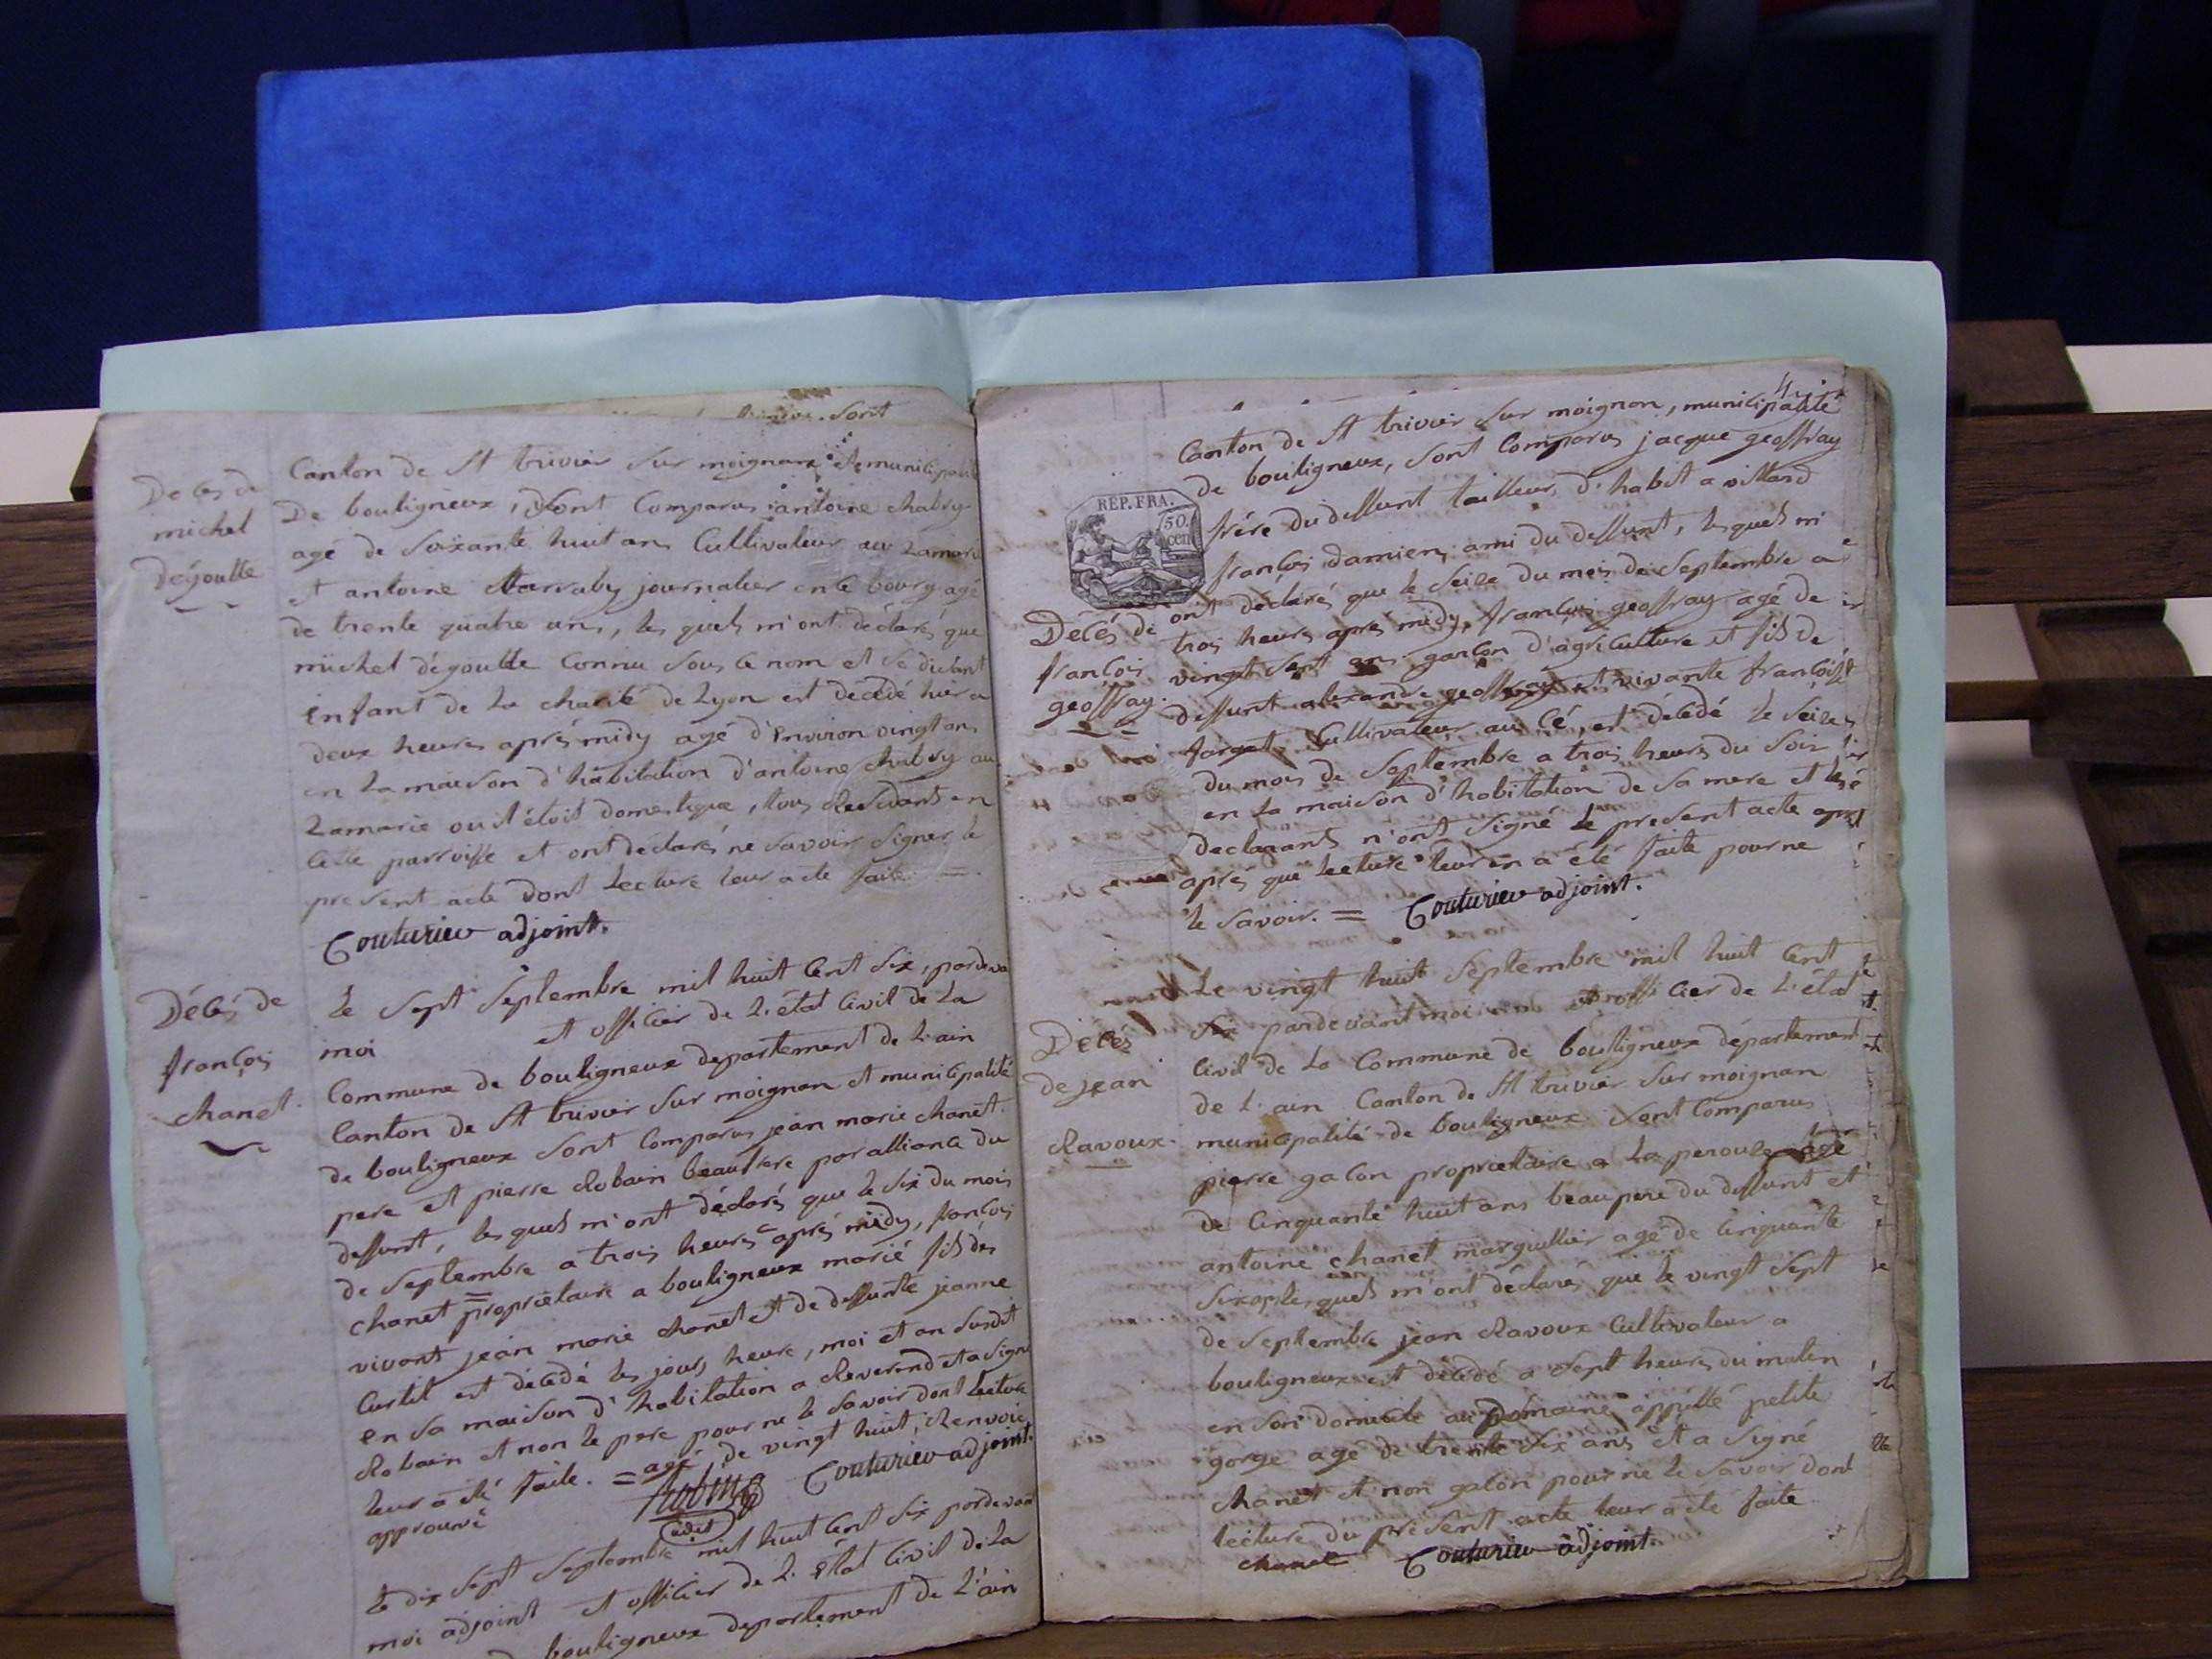 Sont
Décès de
michel
dégoutte
Canton de St trivier sur moignans et municipalité
De bouligneux, Sont Comparus antoine chabry
agé de Soixante huit ans Cultivateur au Lamarie
et antoine journalier en ce bourg agé
de trente quatre ans, les quels m'ont déclaré que
michel dégoutte Connu Sous ce nom et Se disant
Enfant de la charité de Lyon est décédé hier a
deux heures après midy agé d'Environ vingt ans
en la maison d'habitation d'antoine chabry au
Lamarie ou il étoit domestique, tous Residants en
Cette parroisse et ont déclaré ne Savoir Signer le
present acte dont Lecture leur a été faite. =
Couturier adjoint.
Décès de
françois
chanet.
Le Sept Septembre mil huit Cent Six, pardevant
moi et officier de L'état Civil de La
Commune de bouligneux departement de L'ain
Canton de St trivier Sur moignan et municipalité
de bouligneux Sont Comparus jean marie chanet
pere et pierre Robain beaufrere par alliance du
deffunt, les quels m'ont déclaré que le Six du mois
de Septembre a trois heures après midy, françois
chanet = propriétaire a bouligneux marié fils des
vivant jean marie chanet et de deffunte jeanne
Curtil est décédé les jour, heure, moi et an Susdit
en Sa maison d'habitation a Reverend et a Signé
Robain et non le pere pour ne le Savoir dont Lecture
leur a été faite. = agé de vingt huit, Renvoie
approuvé Robin Couturier adjoint.
Le dix Sept Septembre mil huit Cent Six pardevant
moi adjoint et officier de L'état Civil de La
bouligneux departement de L'ain
4
Canton de St trivier Sur moignan, municipalité
de bouligneux, Sont Comparus jacque geoffray
frère du deffunt tailleur d'habit a villard
REP. FRA.
50.
cen
françois damien, ami du deffunt, lesquels m'
ont déclaré que le Seize du mois de Septembre a
Décés de
françois
geoffray.
trois heures après midy, françois geoffray agé de
vingt Sept ans garçon d'agriculture et fils de
deffunt alexandre geoffray et vivante françoise
farget, Cultivateur au Cé, est décédé le Seize
du mois de Septembre a trois heures du Soir
en la maison d'habitation de Sa mere et les
declarants n'ont Signé le present acte
après que lecture leur en a été faite pour ne
le Savoir. = Couturier adjoint.
Décès
de jean
Ravoux.
Le vingt huit Septembre mil huit Cent
Six pardevant moi officier de L'état
Civil de La Commune de bouligneux département
de L'ain Canton de St trivier Sur moignan
municipalité de bouligneux Sont Comparus
pierre galon propriétaire a La perouze agé
de Cinquante huit ans beaupere du deffunt et
antoine chanet marguillier agé de Cinquante
Six quels m'ont déclaré que le vingt Sept
de Septembre jean Ravoux Cultivateur a
bouligneux est décédé a Sept heures du matin
en Son domicile au Domaine appellé petite
gorge agé de trente Six ans et a Signé
chanet et non galon pour ne le Savoir dont
lecture du présent acte leur a été faite
chanet Couturier adjoint.